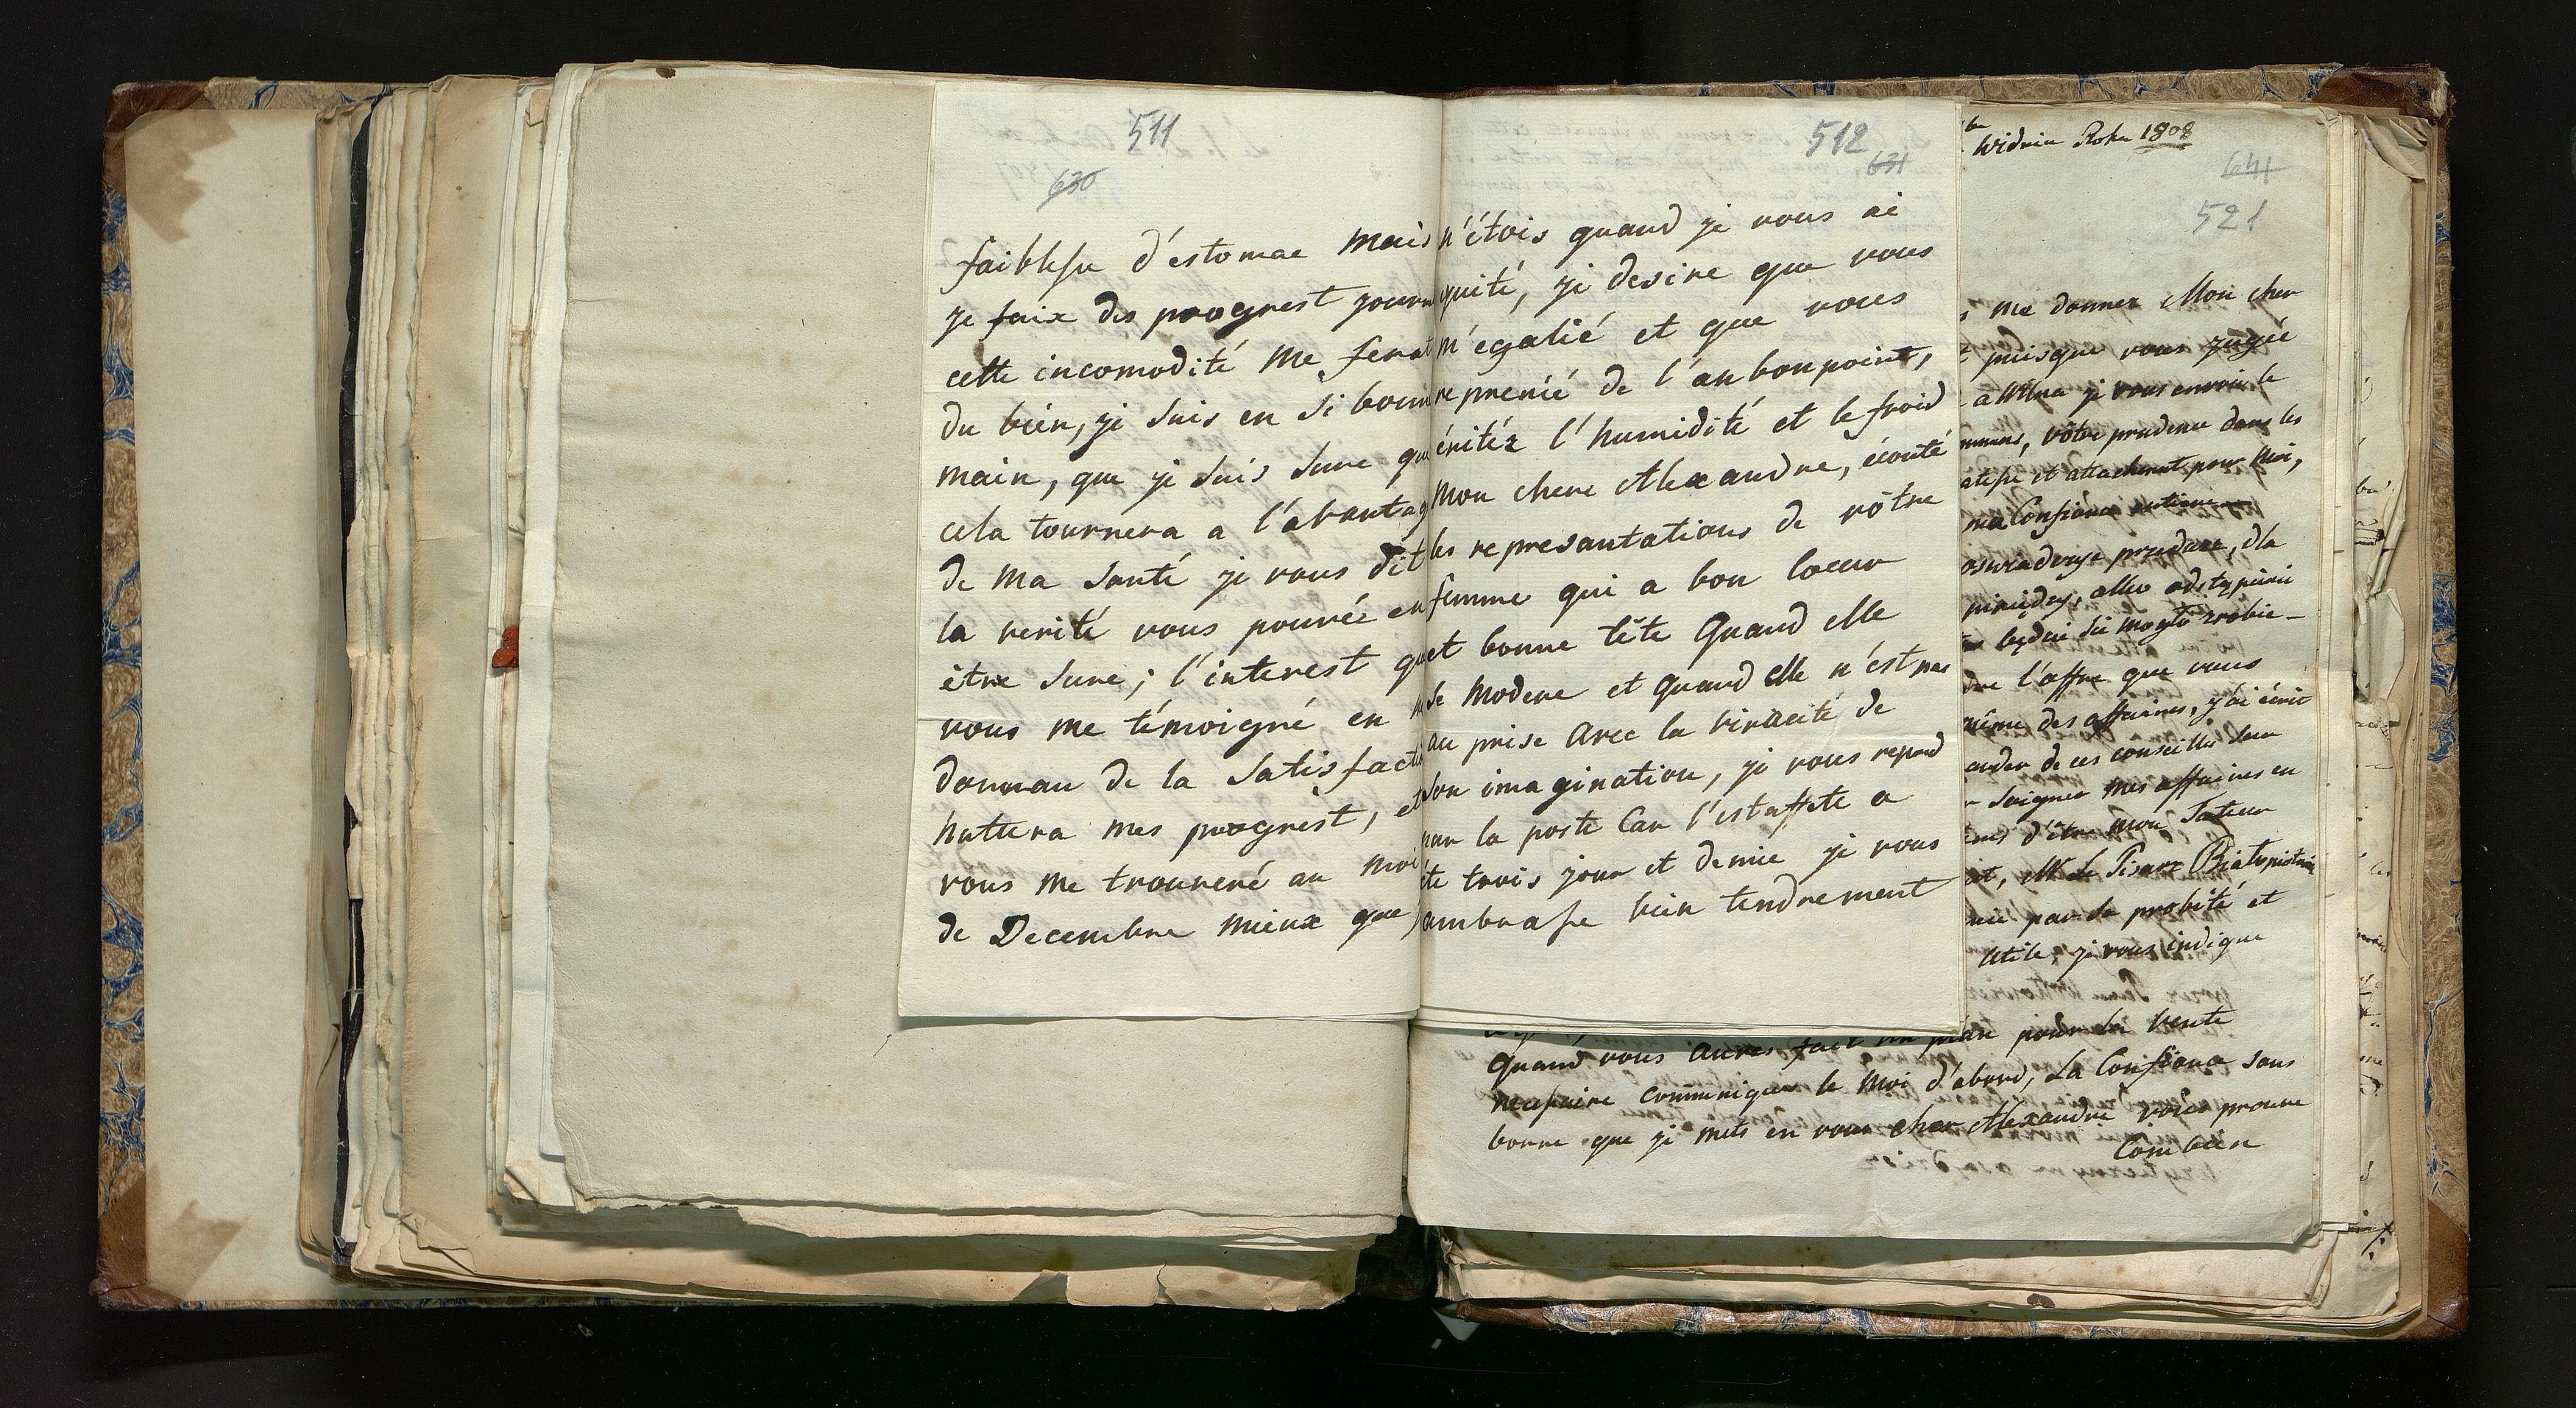 511
630
faiblesse d'éstomac mais
je faix des progrest journ
cette incomodité me ferat
du bién, je suis en si bonn
main, que je suis sure qu
cela tournera a l'abantag
de ma santé je vous dit
la verité vous pouvée en
être sure; l'interest qu
vous me témoigné en m
donnan de la satisfacti
hattera mes progrest, et
vous me trouveré au moi
de Decembre mieux que j
512
631
n'étois quand je vous ai
quité, je desire que vous
m'egalié et que vous
reprenié de l'anbonpoint,
évitéz l'humidité et le froid
Mon chere Alexandre, écouté
les represantations de vôtre
femme qui a bon coeur
et bonne tête Quand elle
se modere et quand elle n'est pas
au prise avec la vivacité de
son imagination, je vous repond
par la poste Car l'estaffete a
été trois jour et demie je vous
ambrasse bién tendrement
Widniu Roku 1808
641
521
me donnez Mon cher
puisque vous jugée
a Wilna je vous envoie le
vôtre prudence dans les
et attachemt pour moi,
ma Confiance entiere
l'affre que vous
des affaires, j'ai écrit
de ces conseills
soigner mes affaires en
d'être mon Tuteur
M Le Pisarz
par sa probité et
utile, je vous indique
quand vous aures fait un plan pour la vente
necessaire communiquer le moi d'abord, La Confiance sans
borne que je mets en vous cher Alexandre vous prouve
Combién